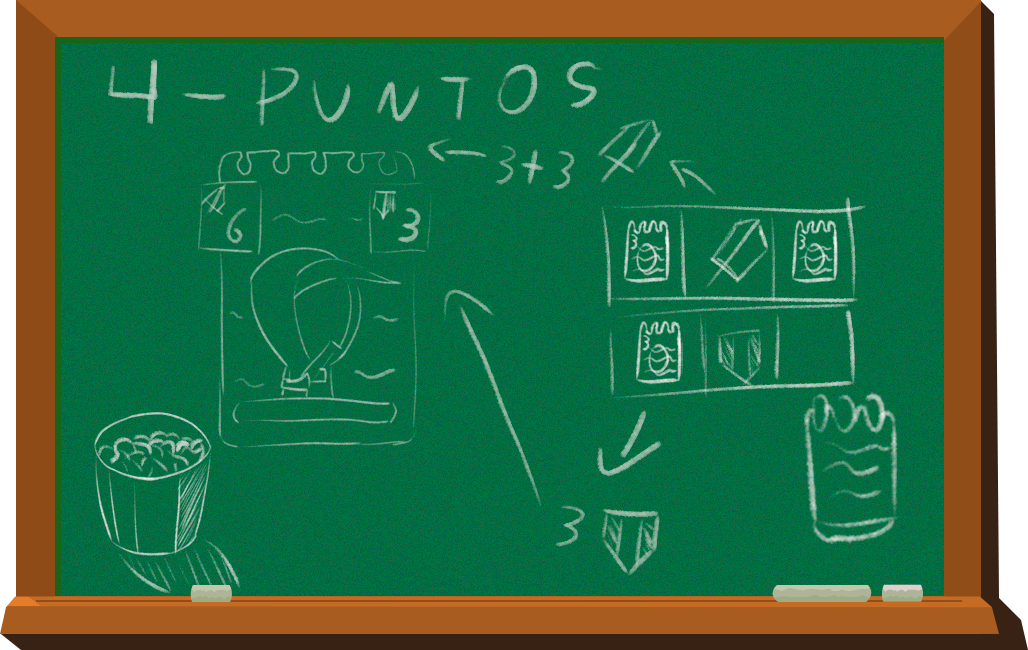 4 - PUNTOS
← 3+3
6
3
3